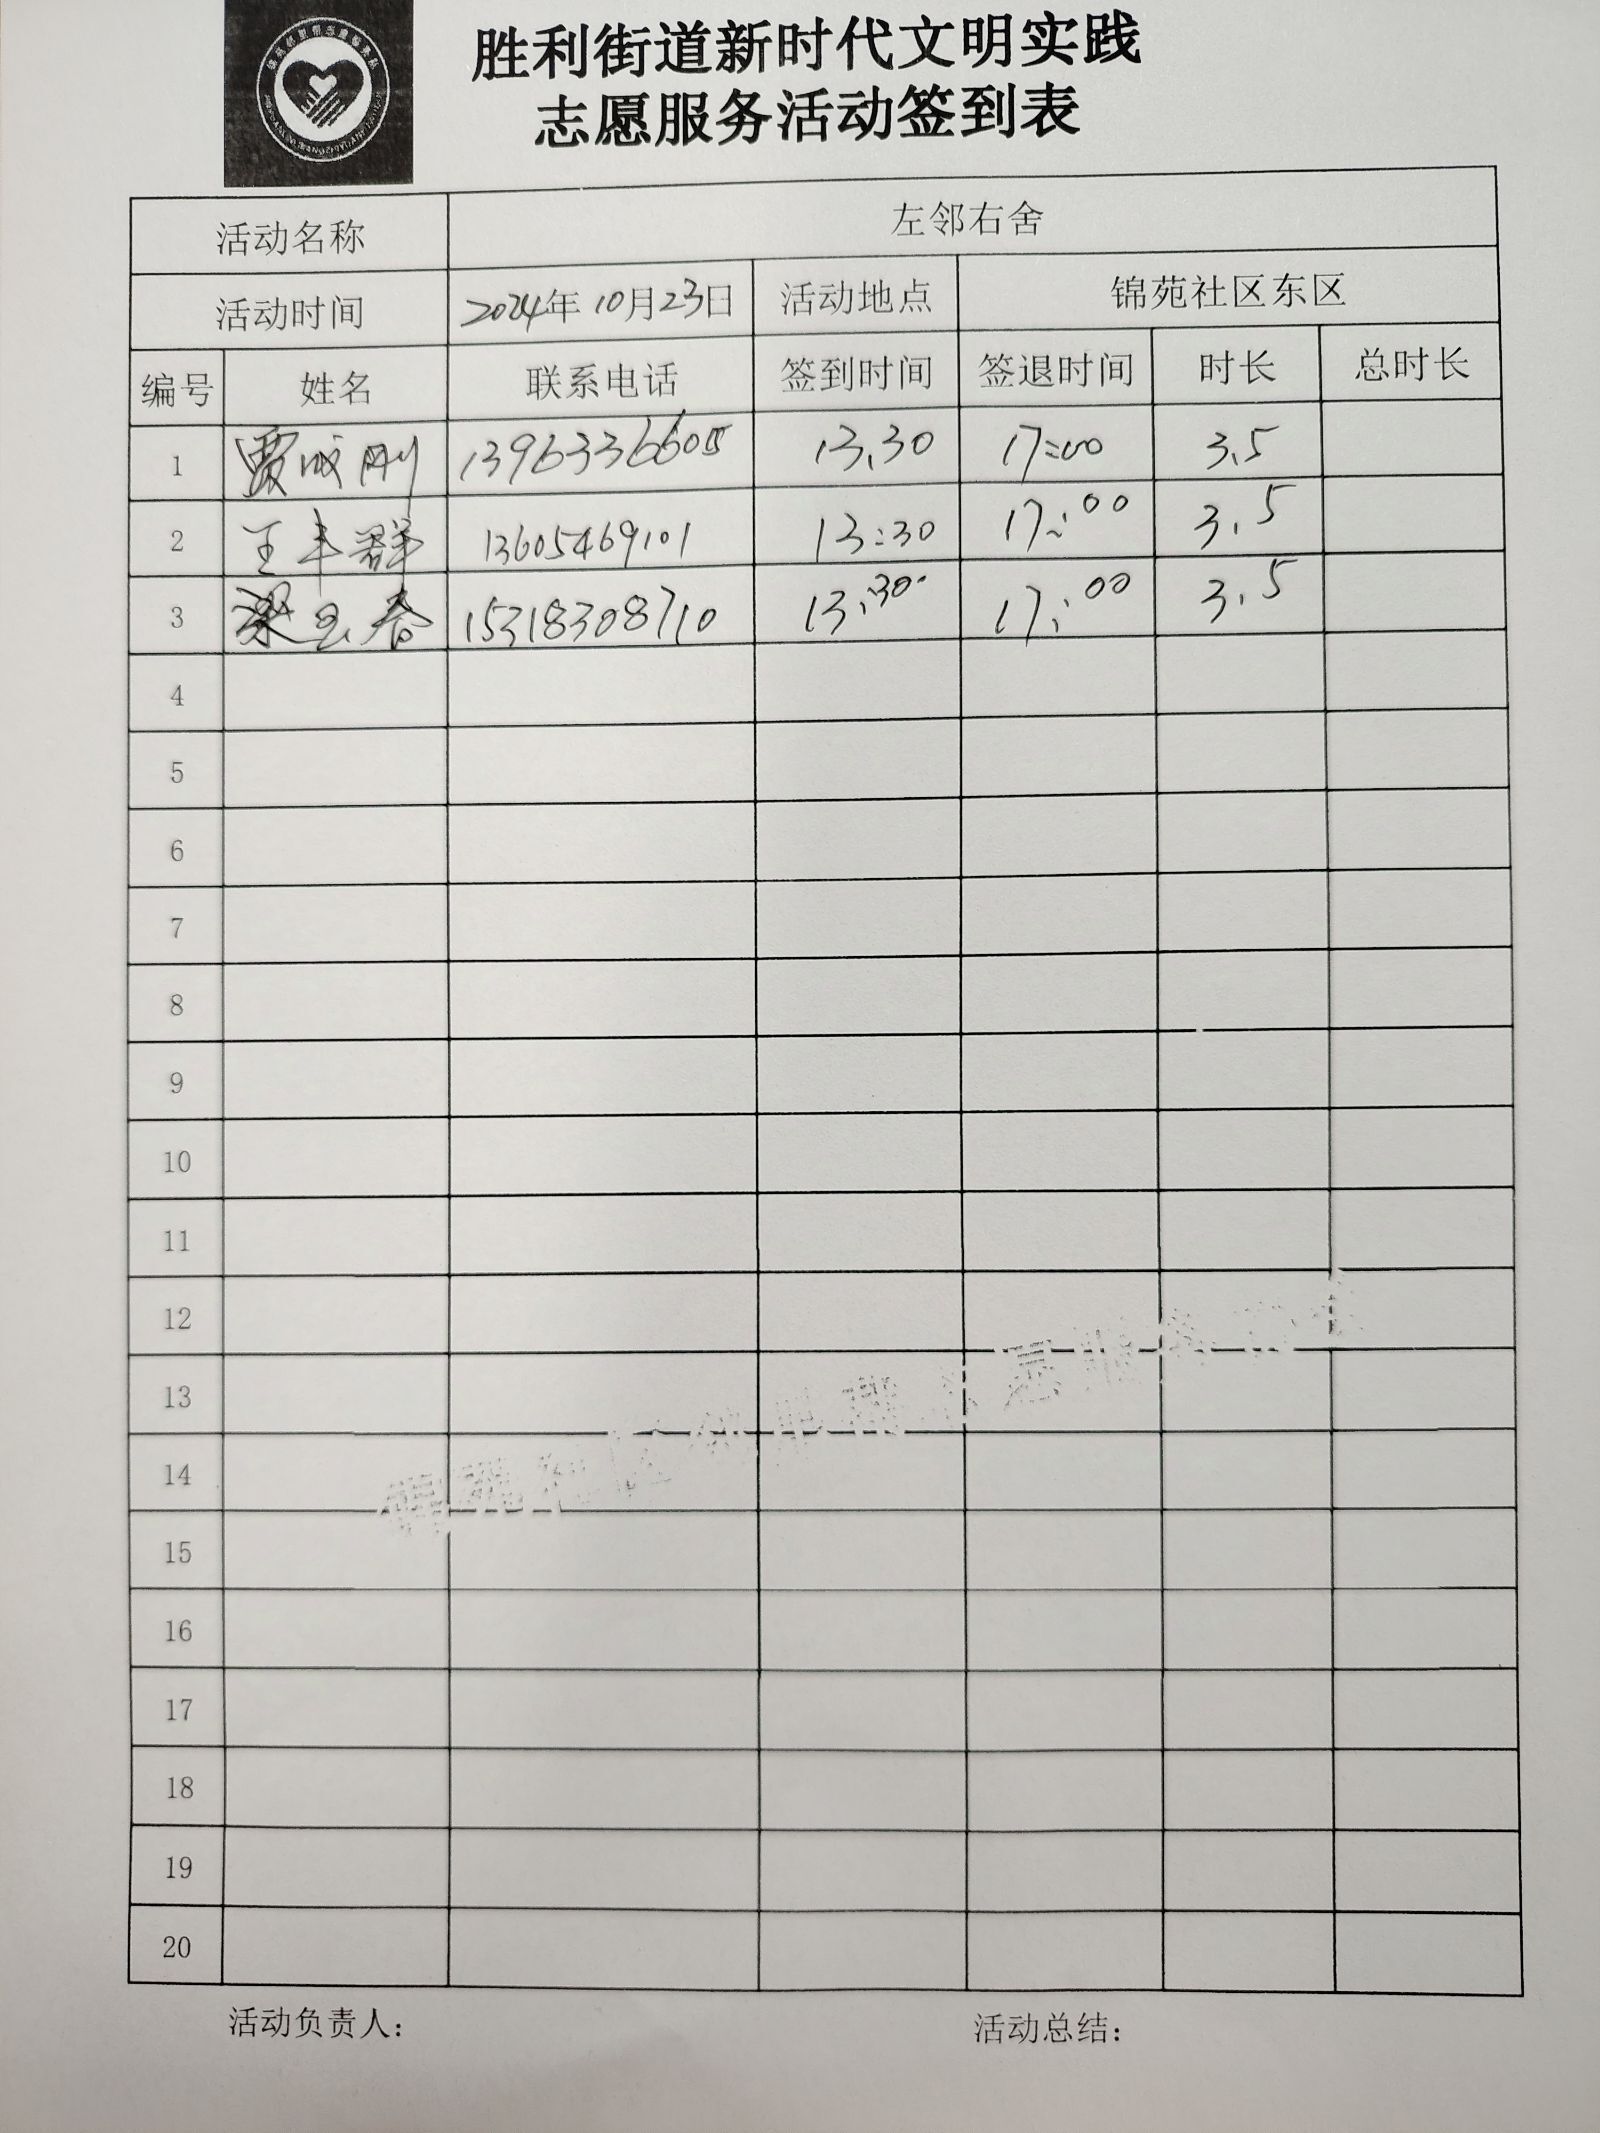 胜利街道新时代文明实践
志愿服务活动签到表
活动名称 左邻右舍
活动时间 2024年10月23日 活动地点 锦苑社区东区
编号 姓名 联系电话 签到时间 签退时间 时长 总时长
1 贾成刚 13963366605 13.30 17:00 3.5
2 王丰群 13605469101 13:30 17:00 3.5
3 梁玉春 15318308710 13:30 17:00 3.5
4
5
6
7
8
9
10
11
12
13
14
15
16
17
18
19
20
活动负责人： 活动总结：